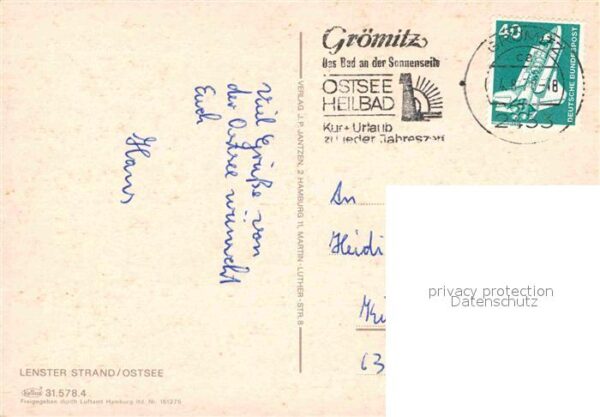 Viel Grüße von
der Ostsee wünscht
Euch
Hans
LENSTER STRAND/OSTSEE
31.578.4
Freigegeben durch Luftamt Hamburg lfd. Nr. 161275
VERLAG J. P. JANTZEN, 2 HAMBURG 11, MARTIN-LUTHER-STR. 8
Grömitz
Das Bad an der Sonnenseite
OSTSEE
HEILBAD
Kur + Urlaub
zu jeder Jahreszeit
40
DEUTSCHE BUNDESPOST
2433
An
Heidi
63
privacy protection
Datenschutz